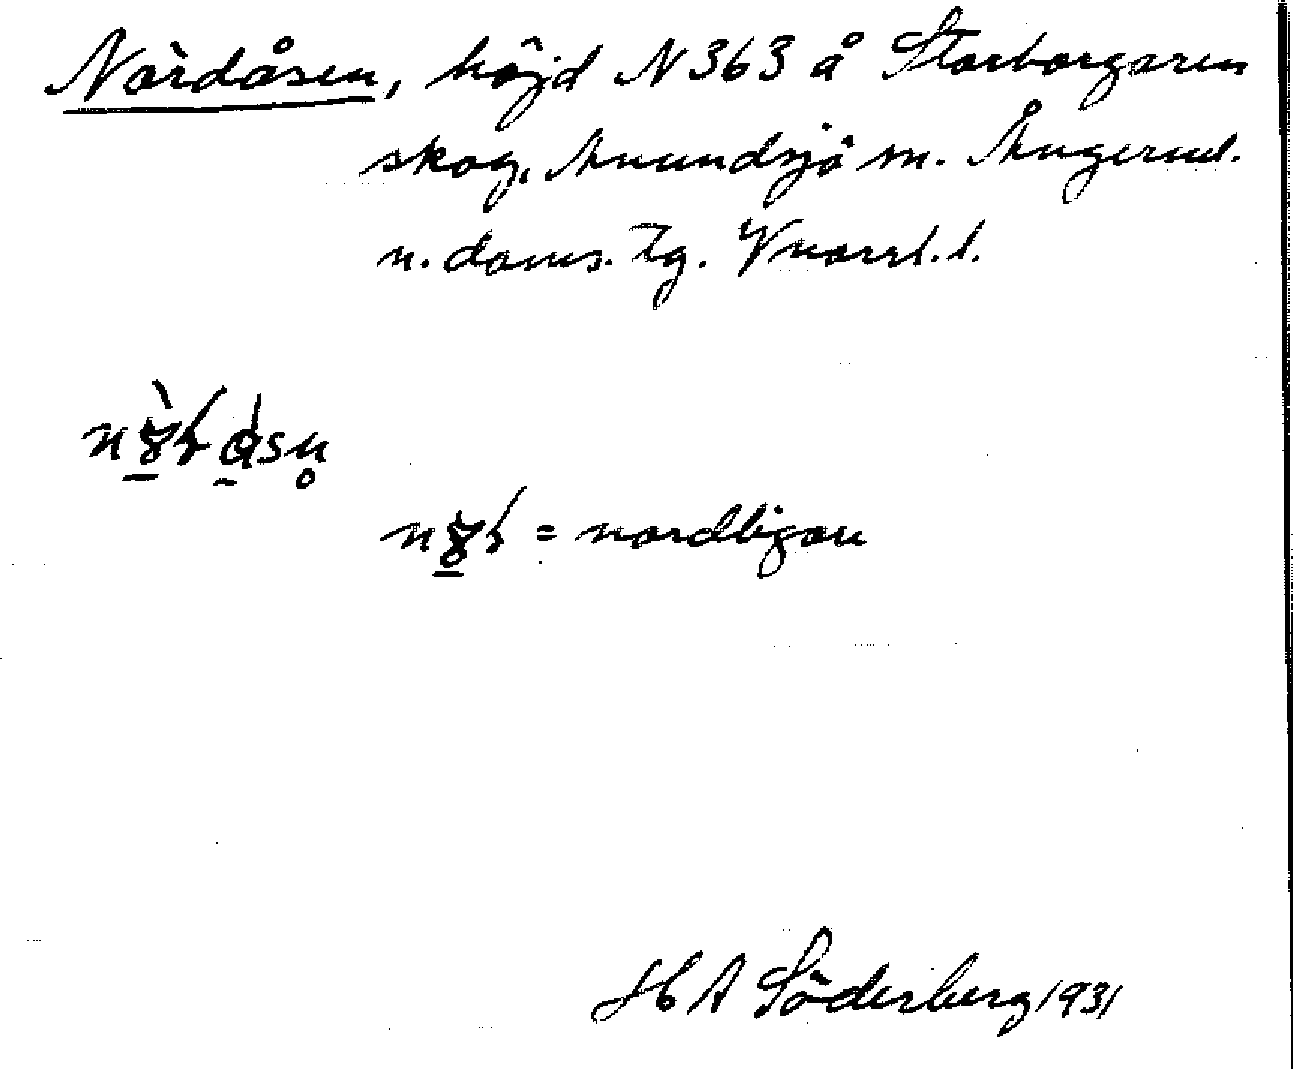 Nòrdåsen, höjd N 363 å Storborgaren
skog, Anundsjö sn. Ångerml.
n. doms. tg. Vnorrl. l.
= nordligan
H A Söderberg 1931